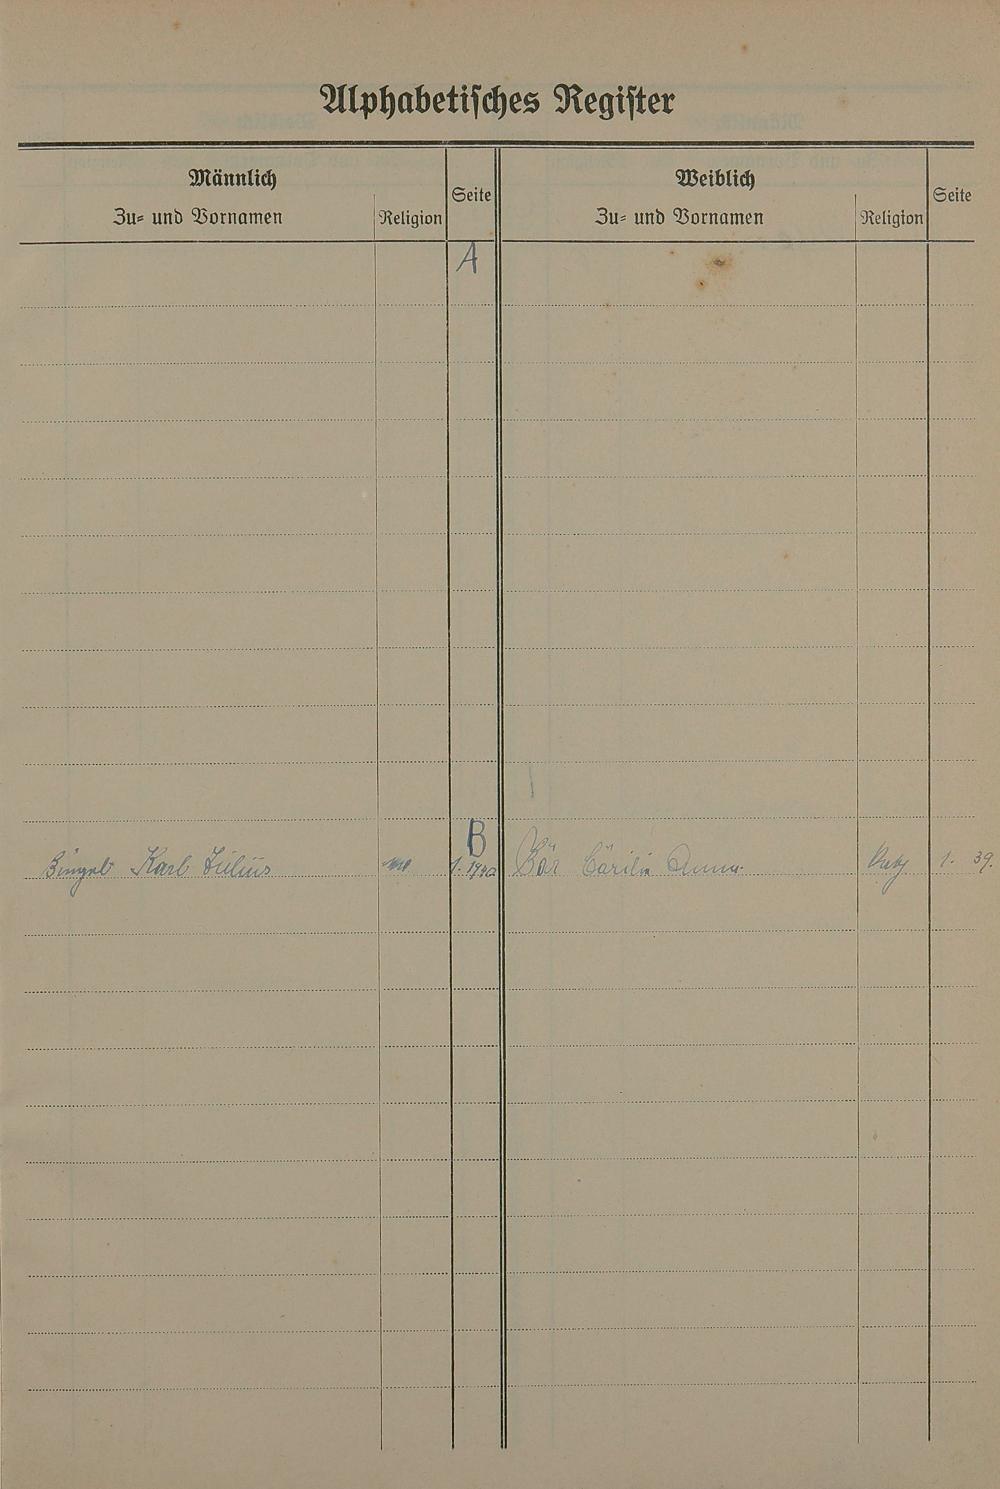 Alphabetisches Register
Männlich
Zu- und Vornamen
Religion
Seite
Weiblich
Zu- und Vornamen
Religion
Seite
A
B
Karl Julius
Bär Cäcilie Anna
1. 39.